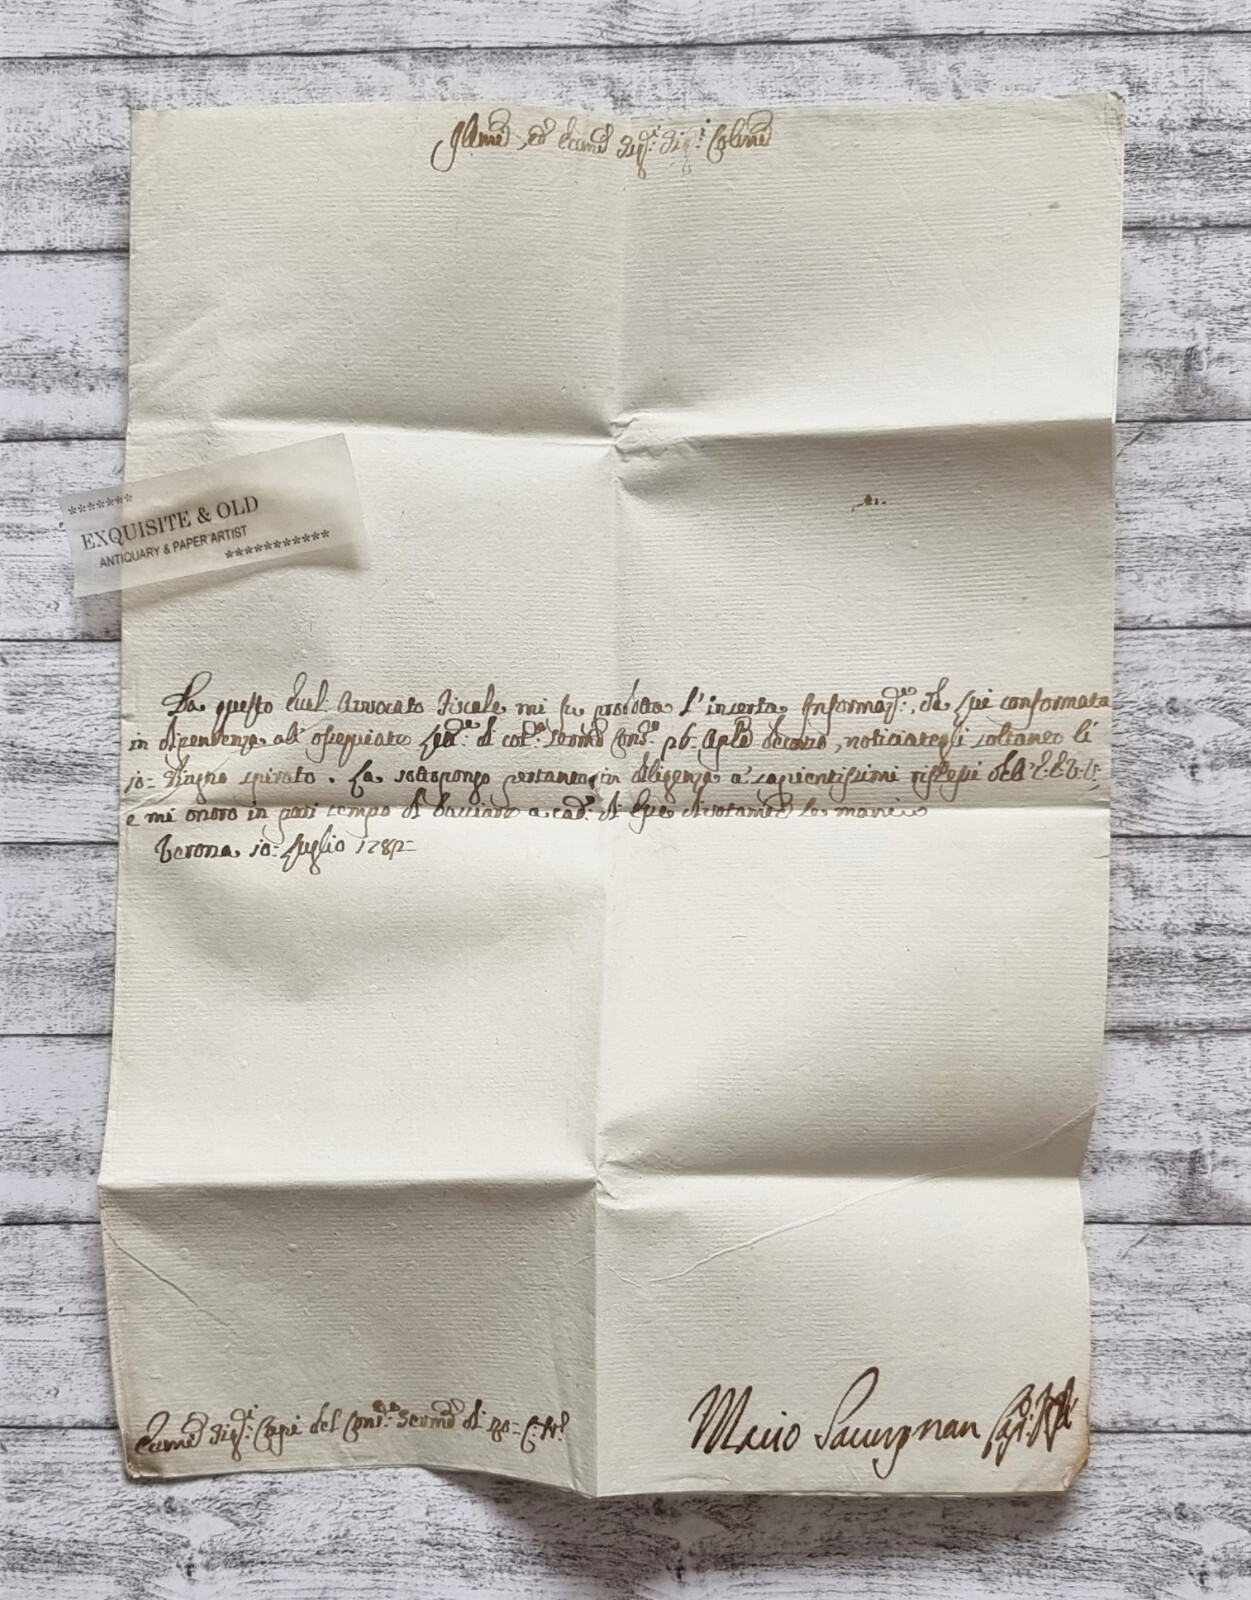 Illmi, ed Eccmi Sigri Sigri Colmi
*******
EXQUISITE & OLD
ANTIQUARY & PAPER ARTIST
***********
Da questo Eccl: Avvocato Fiscale mi fu prodotta l'inserta Informaze: da lui conformata
in dipendenza all' ossequiate di cot:o Sermo Cons:o 26: Aple decorso, noticiategli soltanto li
10: Giugno spirato. La sottopongo pertanto in diligenza a' sapientissimi riflessi dell' E.E. V.V:
e mi onoro in pari tempo di bacciare a cad:a di Esse divotamte le mani
Verona 10: Luglio
Eccmi Sigri Capi del Consio Sermo di 40: C: N:
Savorgnan Capo: